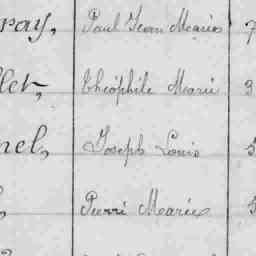 ray, Paul Jean Marie 7
llet, Théophile Marie 3
nel, Joseph Louis 5
Pierre Marie 5